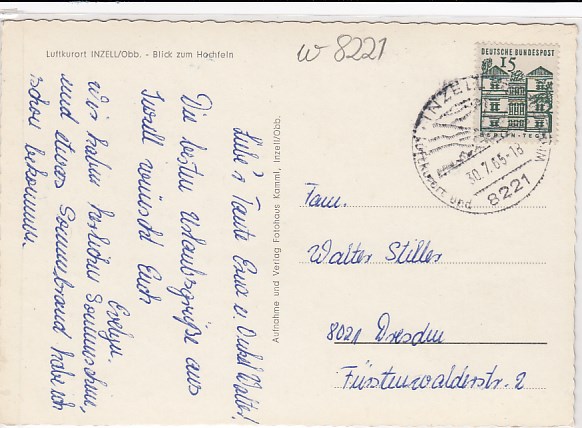 Luftkurort INZELL/Obb. - Blick zum Hochfeln
w 8221
DEUTSCHE BUNDESPOST
15
BERLIN-TEGEL
INZELL
Luftkurort und
30.7.65-18
8221
Liebe Tante Erna u. Onkel Walter!
Die besten Urlaubsgrüße aus
Inzell wünscht Euch
Evelyn.
Wir haben herrlichen Sonnenschein,
und etwas Sonnenbrand habe ich
schon bekommen.
Aufnahme und Verlag Fotohaus Kamml, Inzell/Obb.
Fam.
Walter Stiller
8021 Dresden
Fürstenwalderstr. 2